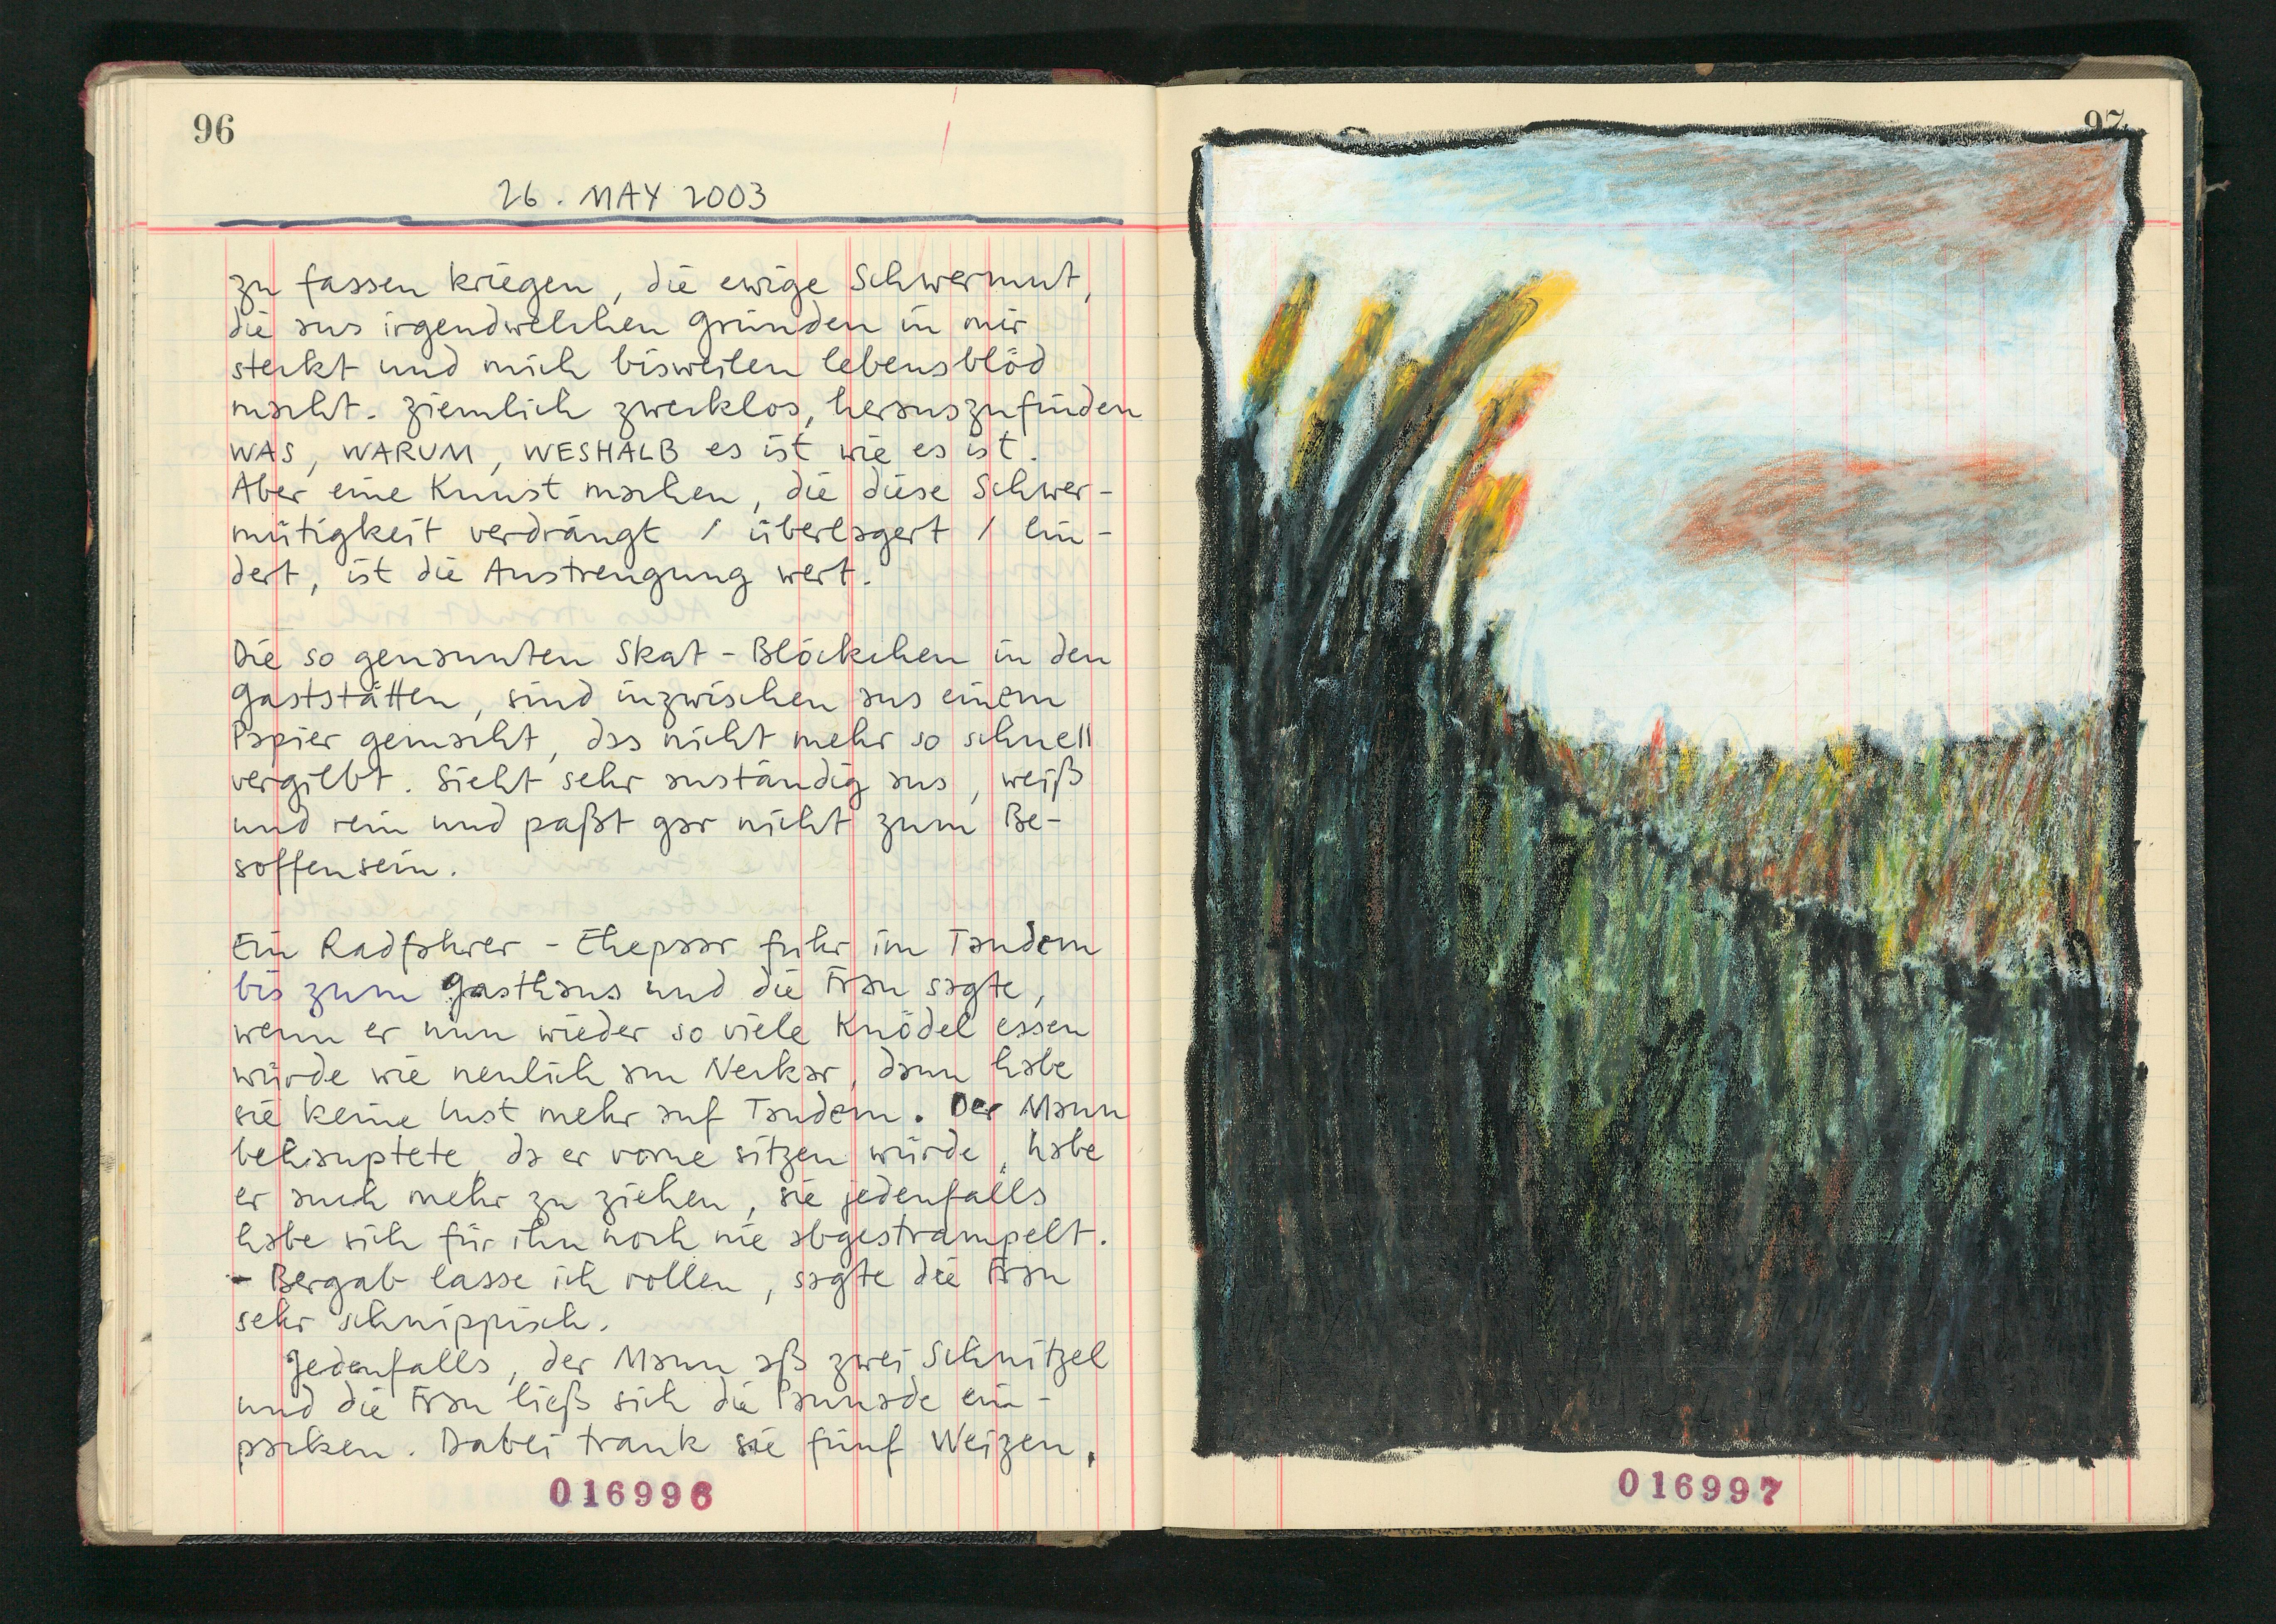 96
26. MAY 2003
zu fassen kriegen, die ewige Schwermut,
die aus irgendwelchen Gründen in mir
steckt und mich bisweilen lebensblöd
macht. Ziemlich zwecklos, herauszufinden
WAS, WARUM, WESHALB es ist wie es ist.
Aber eine Kunst machen, die diese Schwer-
mütigkeit verdrängt / überlagert / lin-
dert, ist die Anstrengung wert.
Die so genannten Skat-Blöckchen in den
Gaststätten, sind inzwischen aus einem
Papier gemacht, das nicht mehr so schnell
vergilbt. Sieht sehr anständig aus, weiß
und rein und paßt gar nicht zum Be-
soffensein.
Ein Radfahrer-Ehepaar fuhr im Tandem
bis zum Gasthaus und die Frau sagte,
wenn er nun wieder so viele Knödel essen
würde wie neulich am Neckar, dann habe
sie keine Lust mehr auf Tandem. Der Mann
behauptete, da er vorne sitzen würde, habe
er auch mehr zu ziehen, sie jedenfalls
habe sich für ihn noch nie abgestrampelt.
- Bergab lasse ich rollen, sagte die Frau
sehr schnippisch.
Jedenfalls, der Mann aß zwei Schnitzel
und die Frau ließ sich die Pannade ein-
packen. Dabei trank sie fünf Weizen.
016996
97
016997